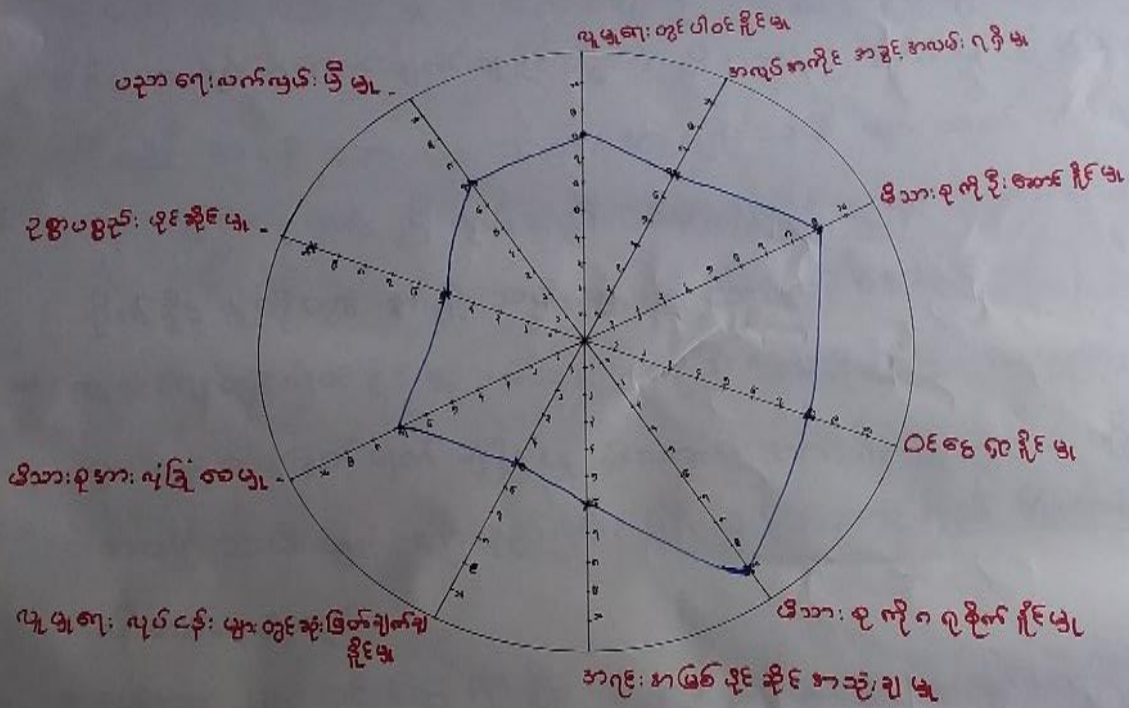 လူမှုရေး တွင် ပါဝင် နိုင်မှု
အလုပ်အကိုင် အခွင့်အလမ်း ရရှိမှု
မိသားစုကို ဦးဆောင် နိုင်မှု
ဝင်ငွေ ရှာ နိုင်မှု
မိသားစုကို ဂရုစိုက် နိုင်မှု
အရင်းအမြစ် ပိုင်ဆိုင် အသုံးချမှု
လူမှုရေး လုပ်ငန်းများတွင် ဆုံးဖြတ်ချက်ချ
နိုင်မှု
မိသားစုအား လုံခြုံစေမှု
ဥစ္စာပစ္စည်း ပိုင်ဆိုင်မှု
ပညာရေး လက်လှမ်းမှီမှု